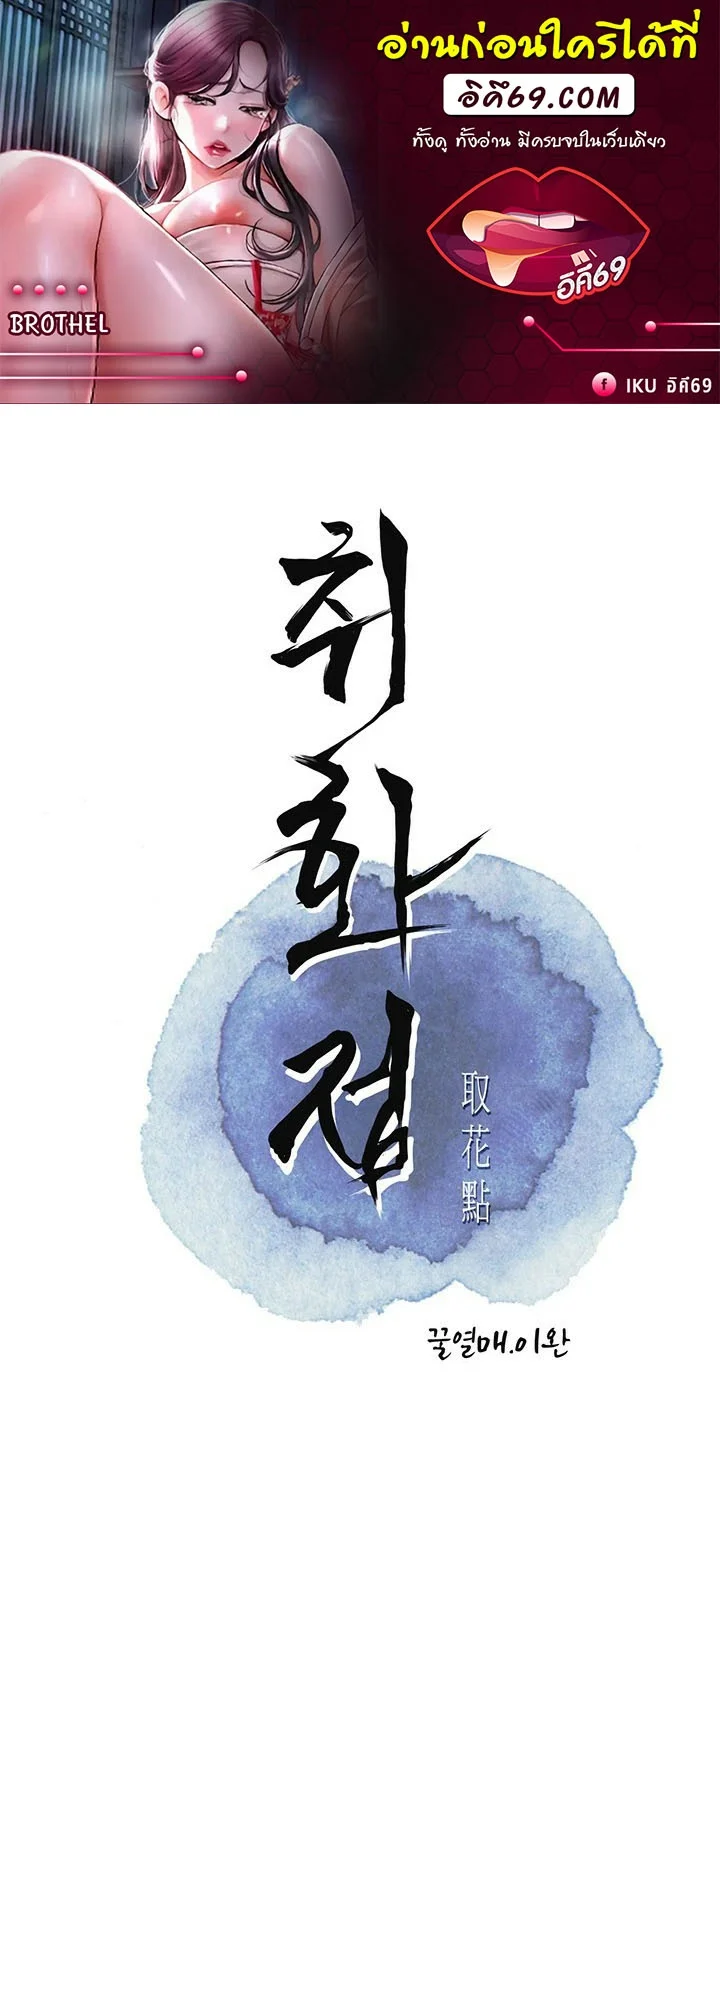 อ่านก่อนใครได้ที่
อิคึ69.COM
ทั้งดู ทั้งอ่าน มีครบจบในเว็บเดียว
อิคึ69
BROTHEL
IKU อิคึ69
취화점
取花點
꿀열매.이완